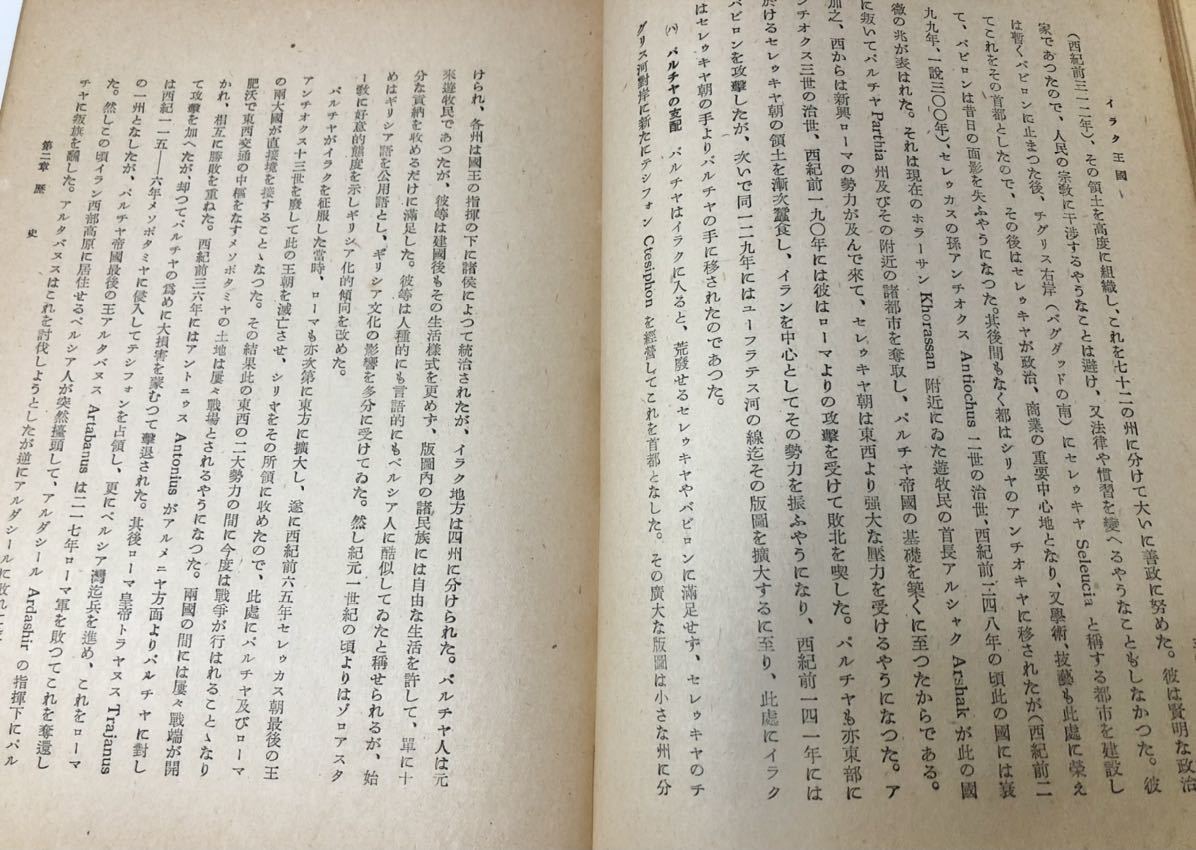 イラク王國
(西紀前三一二年)、その領土を高度に組織し、これを七十二の州に分けて大いに善政に努めた。彼は賢明な政治
家であつたので、人民の宗教に干渉するやうなことは避け、又法律や慣習を變へるやうなこともしなかつた。彼
は暫くバビロンに止まつた後、チグリス右岸(バグダッドの南)にセレゥキヤ Seleucia と稱する都市を建設し
てこれをその首都としたので、その後はセレゥキヤが政治、商業の重要中心地となり、又學術、技藝も此處に榮え
て、バビロンは昔日の面影を失ふやうになつた。其後間もなく都はシリヤのアンチオキヤに移されたが(西紀前二
九九年、一說三〇〇年)、セレゥカスの孫アンチオクス Antiochus 二世の治世、西紀前二四八年の頃此の國には衰
微の兆が表はれた。それは現在のホラーサン Khorassan 附近にゐた遊牧民の首長アルシャク Arshak が此の國
に叛いてパルチヤ Parthia 州及びその附近の諸都市を奪取し、パルチヤ帝國の基礎を築くに至つたからである。
加之、西からは新興ローマの勢力が及んで來て、セレゥキヤ朝は東西より强大な壓力を受けるやうになつた。ア
ンチオクス三世の治世、西紀前一九〇年には彼はローマよりの攻擊を受けて敗北を喫した。パルチヤも亦東部に
於けるセレゥキヤ朝の領土を漸次蠶食し、イランを中心としてその勢力を振ふやうになり、西紀前一四一年には
バビロンを攻擊したが、次いで同一二九年にはユーフラテス河の線迄その版圖を擴大するに至り、此處にイラク
はセレゥキヤ朝の手よりパルチヤの手に移されたのであつた。
(ハ) パルチヤの支配 パルチヤはイラクに入ると、荒廢せるセレゥキヤやバビロンに滿足せず、セレゥキヤのチ
グリス河對岸に新たにテシフォン Ctesiphon を經營してこれを首都となした。その廣大な版圖は小さな州に分
けられ、各州は國王の指揮の下に諸侯によつて統治されたが、イラク地方は四州に分けられた。パルチヤ人は元
來遊牧民であつたが、彼等は建國後もその生活樣式を更めず、版圖內の諸民族には自由な生活を許して、單に十
分な貢納を收めるだけに滿足した。彼等は人種的にも言語的にもペルシア人に酷似してゐたと稱せられるが、始
めはギリシア語を公用語とし、ギリシア文化の影響を多分に受けてゐた。然し紀元一世紀の頃よりはゾロアスタ
ー敎に好意的態度を示しギリシア化的傾向を改めた。
パルチヤがイラクを征服した當時、ローマも亦次第に東方に擴大し、遂に西紀前六五年セレゥカス朝最後の王
アンチオクス十三世を廢して此の王朝を滅亡させ、シリヤをその所領に收めたので、此處にパルチヤ及びローマ
の兩大國が直接境を接することゝなつた。その結果此の東西の二大勢力の間に今度は戰爭が行はれることゝなり
肥沃で東西交通の中樞をなすメソポタミヤの土地は屢々戰場とされるやうになつた。兩國の間には屢々戰端が開
かれ、相互に勝敗を重ねた。西紀前三六年にはアントニゥス Antonius がアルメニヤ方面よりパルチヤに對し
て攻擊を加へたが、却つてパルチヤの爲めに大損害を蒙むつて擊退された。其後ローマ皇帝トラヤヌス Trajanus
は西紀一一五——六年メソポタミヤに侵入してテシフォンを占領し、更にペルシア灣迄兵を進め、これをローマ
の一州となしたが、パルチヤ帝國最後の王アルタバヌス Artabanus は二一七年ローマ軍を敗つてこれを奪還し
た。然しこの頃イラン西部高原に居住せるペルシア人が突然擡頭して、アルダシール Ardashir の指揮下にパル
チヤに叛旗を飜した。アルタバヌスはこれを討伐しようとしたが逆にアルダシールに敗れ
第二章 歷史